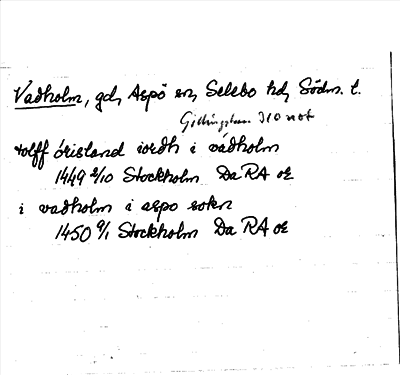 Vadholm, gd, Aspö sn, Selebo hd, Södm. l.
310 not
tolff örisland iordh i vadholm
1449 2/10 Stockholm Da RA or
i vadholm i aspo sokn
1450 9/1 Stockholm Da RA or